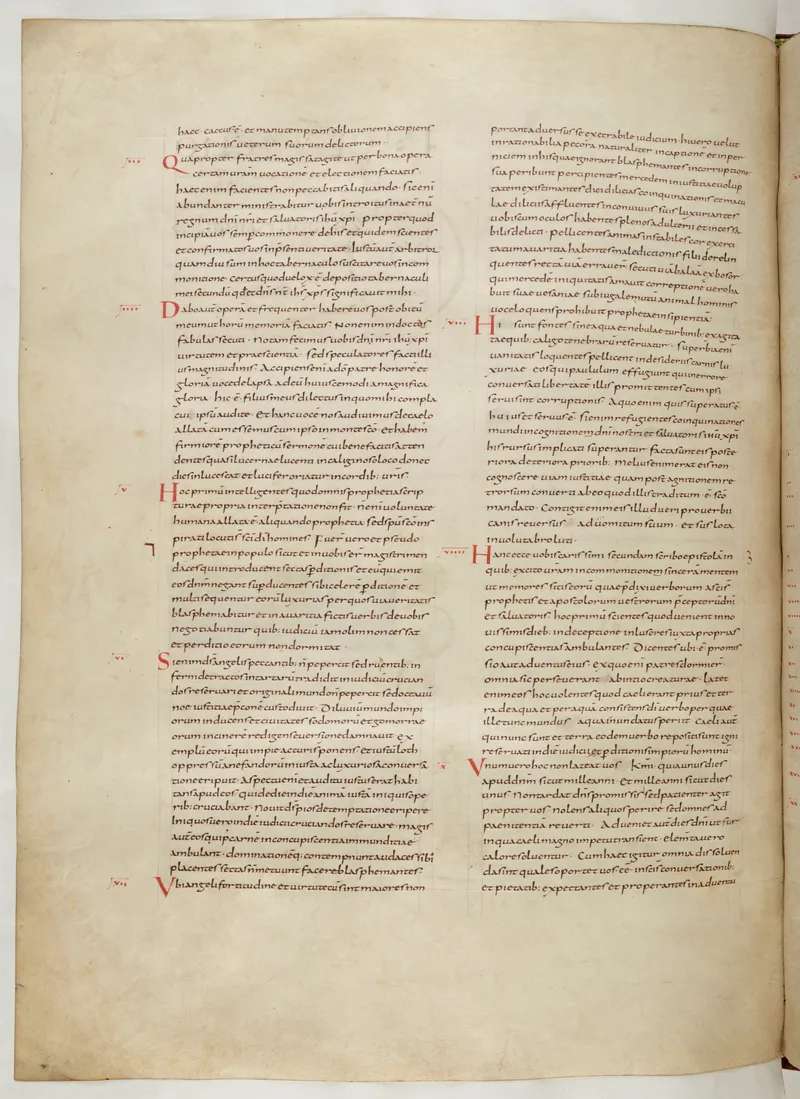 haec · caecus ē · et manu temptans obliuionem accipiens
purgationis ueterum suorum delictorum ·
··· Quapropter fratres magis satagite ut per bona opera
certam uram uocatione et electionem faciatis ·
haec enim facientes non peccabitis aliquando · sic eni
abundanter ministrabitur uobis introitus in aetnū
regnum dnī nrī et saluatoris ihū xpī · propter quod
incipiā uos semp commonere de his et quidem scientes
et confirmatos uos in psenti ueritate · Iustū aūt arbitror
quamdiu sum in hoc tabernaculo suscitare uos in com
monitione · certus quod uelox ē depositio tabernaculi
mei secundū qd et dn̄s nr̄ ihs xps significauit mihi ·
···· Dabo aūt operā et frequenter habere uos post obitū
meum ut horū memoriā faciatis Non enim indoctas
fabulas secuti · notam fecimus uobis dnī nrī ihū xpī
uirtutem et praesentiā · sed speculatores facti illi
us magnitudinis · Accipiens eni a dō patre honore et
gloriā uoce delapsa ad eū huiuscemodi a magnifica
gloria · hic ē filius meus dilectus in quo mihi compla
cui · ipsū audite · Et hanc uocē nos audiuimus de caelo
allatā cum essemus cum ipso in monte scō · et habem̄
firmiorē propheticū sermonē cui bene facitis atten
dentes quasi lucernae lucenti in caliginoso loco donec
dies inlucescat et lucifer oriatur in cordib; uris ·
v Hoc primū intellegentes quod omnis prophetia scrip
turae propria interpretatione non fit · neni uoluntate
humana allata ē aliquando prophetia · sed spu scō ins
pirati locuti s sci di homines · Fuer̄ uero et pseudo
prophetae in populo sicut et in uobis er̄ magistri men
daces qui introducent sectas pditionis et eū qui emit
eos dnm negant supducentes sibi celerē pditionē et
multi sequentur eorū luxurias per quos uia ueritatis
blasphemabitur et in auaritia fictis uerbis de uobis
negotiabuntur quib; iudiciū iam olim non cessat
et perditio eorum non dormitat ·
vi Si enim ds angelis peccantib; n̄ pepercit sed rudentib; in
ferni detractos in tartarū tradidit in iudiciū crucian
dos reseruari et originali mundo n̄ pepercit sed octauū
noe iustitiae pconē custodiuit · Diluuiū mundo impi
orum inducens et ciuitates sodomorū et gomorrae
orum in cinerē redigens euersione damnauit ex
emplū eorū qui impie acturi s ponens et iustū loth
oppressū a nefandorū iniustā ac luxuriosā conuersa
tione eripuit · Aspectu eni et auditu iustus erat habi
tans apud eos qui de die in diē animā iustā iniquis ope
rib; cruciabant · Nouit dns pios de temptatione eripere
Iniquos uero in diē iudicii cruciandos reseruare · magis
aūt eos qui p carnē in concupiscentia immunditiae
ambulant · dominationēq; contempnunt audaces sibi
placentes sectas n̄ metuunt facere blasphemantes ·
vii Vbi angeli fortitudine et uirtute cū sint maiores non
portant aduersus se execrabile iudicium · hi uero uelut
inrationabilia pecora naturaliter in captionē et in per
niciem in his quae ignorant blasphemantes in corruptione
sua peribunt percipientes mercedem iniustitiae uolup
tatem existimantes diei delicias coinquinationis et macu
lae deliciis affluentes in conuiuiis suis luxuriantes
uobiscum oculos habentes plenos adulterii et incessa
bilis delicti · pellicentes animas instabiles cor exerci
tatum auaritia habentes maledictionis filii derelin
quentes rectā uiā errauer̄ secuti uiā balaā ex bosor ·
qui mercedē iniquitatis amauit correptionē uero ha
buit suae uesaniae subiugale mutū animal hominis
uoce loquens prohibuit prophetae insipientiā ·
viii Hi sunt fontes sine aqua et nebulae turbinib; exagita
tae quib; caligo tenebrarū reseruatur · superbia eni
uanitatis loquentes pellicent in desideriis carnis lu
xuriae eos qui paululum effugiunt qui in errore
conuersati libertatē illis promittentes cum ipsi
serui sint corruptionis · A quo enim quis superatus ē
huius et seruus ē · si enim refugientes coinquinationes
mundi in cognitionem dnī nostri et saluatoris ihū xpī
his rursus implicati superantur facta sunt eis poste
riora deteriora priorib; melius enim erat eis non
cognoscere uiam iustitiae quam post agnitionem re
trorsum conuerti ab eo quod illis traditum ē scō
mandato · Contigit enim eis illud ueri prouerbii
canis reuersus Ad uomitum suum · et sus lota
in uolutabro luti ·
viiii Hanc ecce uobis carissimi secundam scribo epistolā in
quib; excito uram in commonitionem sincerā mentem
ut memores sitis eorū quae pdixi uerborum a scīs
prophetis et apostolorum uestrorum pceptorū dnī
et saluatoris hoc primū scientes quod uenient in no
uissimis dieb; in deceptione inlusores iuxta proprias
concupiscentias ambulantes · Dicentes ubi ē promis
sio aut aduentus eius · ex quo eni patres dormier̄
omnia sic perseuerant Ab initio creaturae · Latet
enim eos hoc uolentes quod caeli erant prius et ter
ra de aqua et per aquā consistens di uerbo per quae
ille tunc mundus Aqua inundatus periit caeli aūt
qui nunc sunt et terra eodem uerbo repositi sunt igni
reseruati in diē iudicii et pditionis impiorū hominū
x Vnum uero hoc non lateat uos Kmi · quia unus dies
apud dnm sicut mille anni · et mille anni sicut dies
unus Non tardat dn̄s promissis sed patienter agit
propter uos nolens aliquos perire sed omnes ad
paenitentiā reuerti · Adueniet aūt dies dnī ut fur ·
in qua caeli magno impetu transient · elem̄ta uero
calore soluentur · Cum haec igitur omnia dissoluen
da sint quales oportet uos eē · in scīs conuersationib;
et pietatib; expectantes et properantes in aduentū